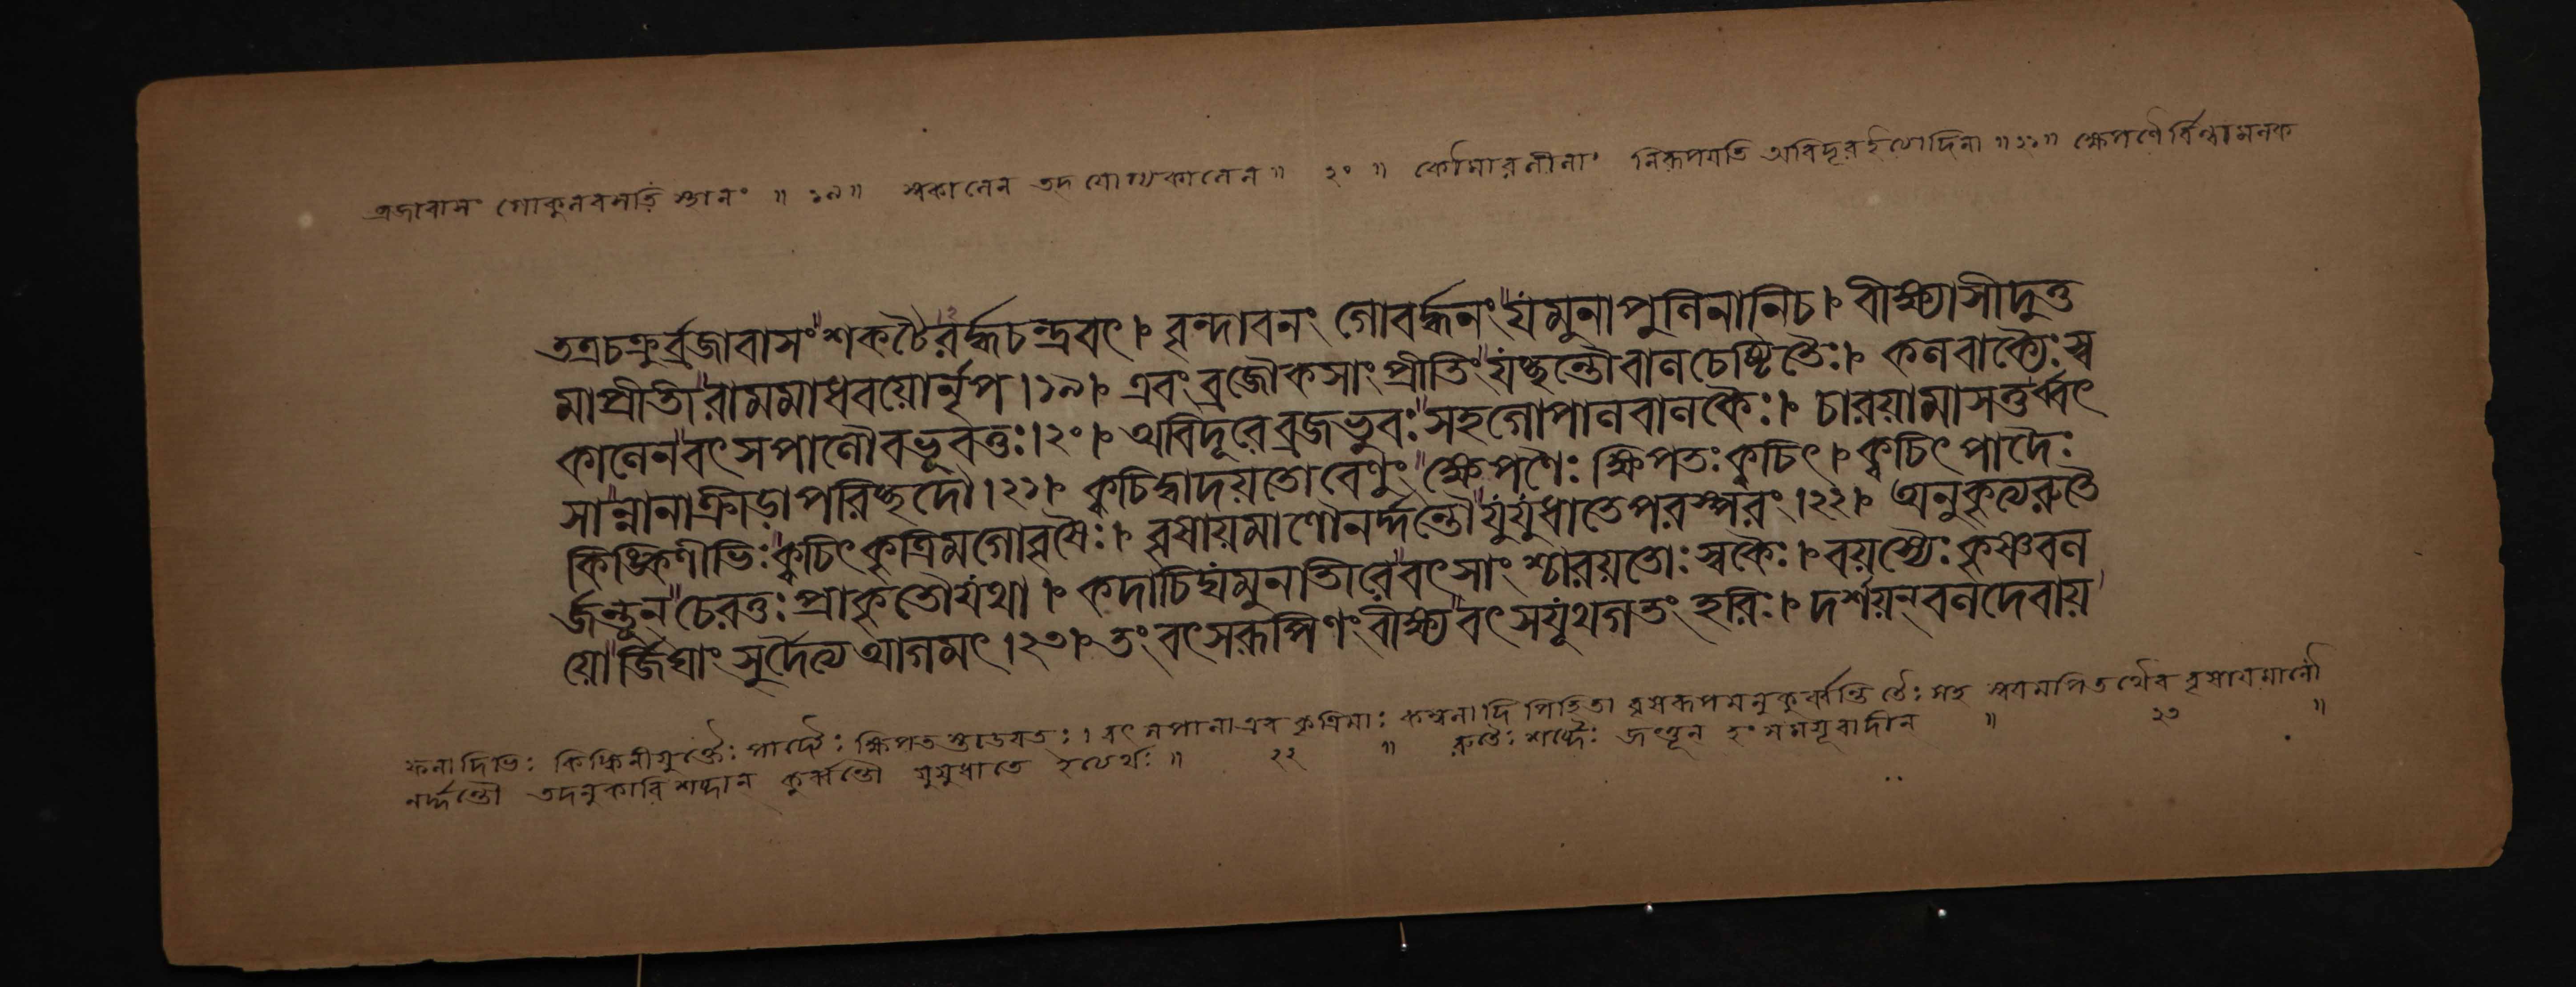 ব্রজাবাসং গোকুলবসতিং স্থানং ॥ ১৯ ॥ স্বকালেন তদ যোগ্যকালেন ॥ ২০ ॥ কৌমারলীলাং নিরূপয়তি অবিদূর ইত্যাদিনা ॥ ২১ ॥ ক্ষেপণৈর্বিল্বামলক
তত্রচক্রুর্ব্রজাবাসং শকটৈরর্দ্ধচন্দ্রবৎ । বৃন্দাবনং গোবর্দ্ধনং যমুনাপুলিনানিচ । বীক্ষ্যাসীদুত্ত
মাপ্রীতী রামমাধবয়োর্নৃপ । ১৯ । এবং ব্রজৌকসাং প্রীতিং যচ্ছন্তৌবালচেষ্টিতৈঃ । কলবাক্যৈঃ স্ব
কালেন বৎসপালৌবভূবতুঃ । ২০ । অবিদূরেব্রজভুবঃ সহগোপালবালকৈঃ । চারয়ামাসতুর্ব্বৎ
সান্নানাক্রীড়াপরিচ্ছদৌ । ২১ । ক্বচিদ্বাদয়তোবেণুং ক্ষেপণৈঃ ক্ষিপতঃ ক্বচিৎ । ক্বচিৎ পাদৈঃ
কিঙ্কিণীভিঃ ক্বচিৎ কৃত্রিমগোবৃষৈঃ । বৃষায়মাণৌনর্দ্দন্তৌ যুযুধাতেপরস্পরং । ২২ । অনুকৃত্যরুতৈ
র্জন্তূন চেরতুঃ প্রাকৃতৌযথা । কদাচিদ্যমুনাতীরে বৎসাং শ্চারয়তোঃ স্বকৈঃ । বয়স্যৈঃ কৃষ্ণবল
য়ো র্জিঘাং সুর্দৈত্য আগমৎ । ২৩ । তং বৎসরূপিণং বীক্ষ্য বৎসযূথগতং হরিঃ । দর্শয়ন্ বলদেবায়
ফলাদিভিঃ কিঙ্কিনীযুক্তৈঃ পাদৈঃ ক্ষিপতস্তাডয়তঃ । বৎসপালাএব কৃত্রিমাঃ কম্বলাদি পিহিতা বৃষরূপমনুকুর্ব্বন্তি তৈঃ সহ স্বয়মপি তথৈব বৃষায়মাণৌ
নর্দ্দন্তৌ তদনুকারি শব্দান কুর্ব্বন্তৌ যুযুধাতে ইত্যর্থঃ ॥ ২২ ॥ রুতৈঃ শব্দৈঃ জন্তূন হংসময়ূরাদীন ॥ ২৩ ॥